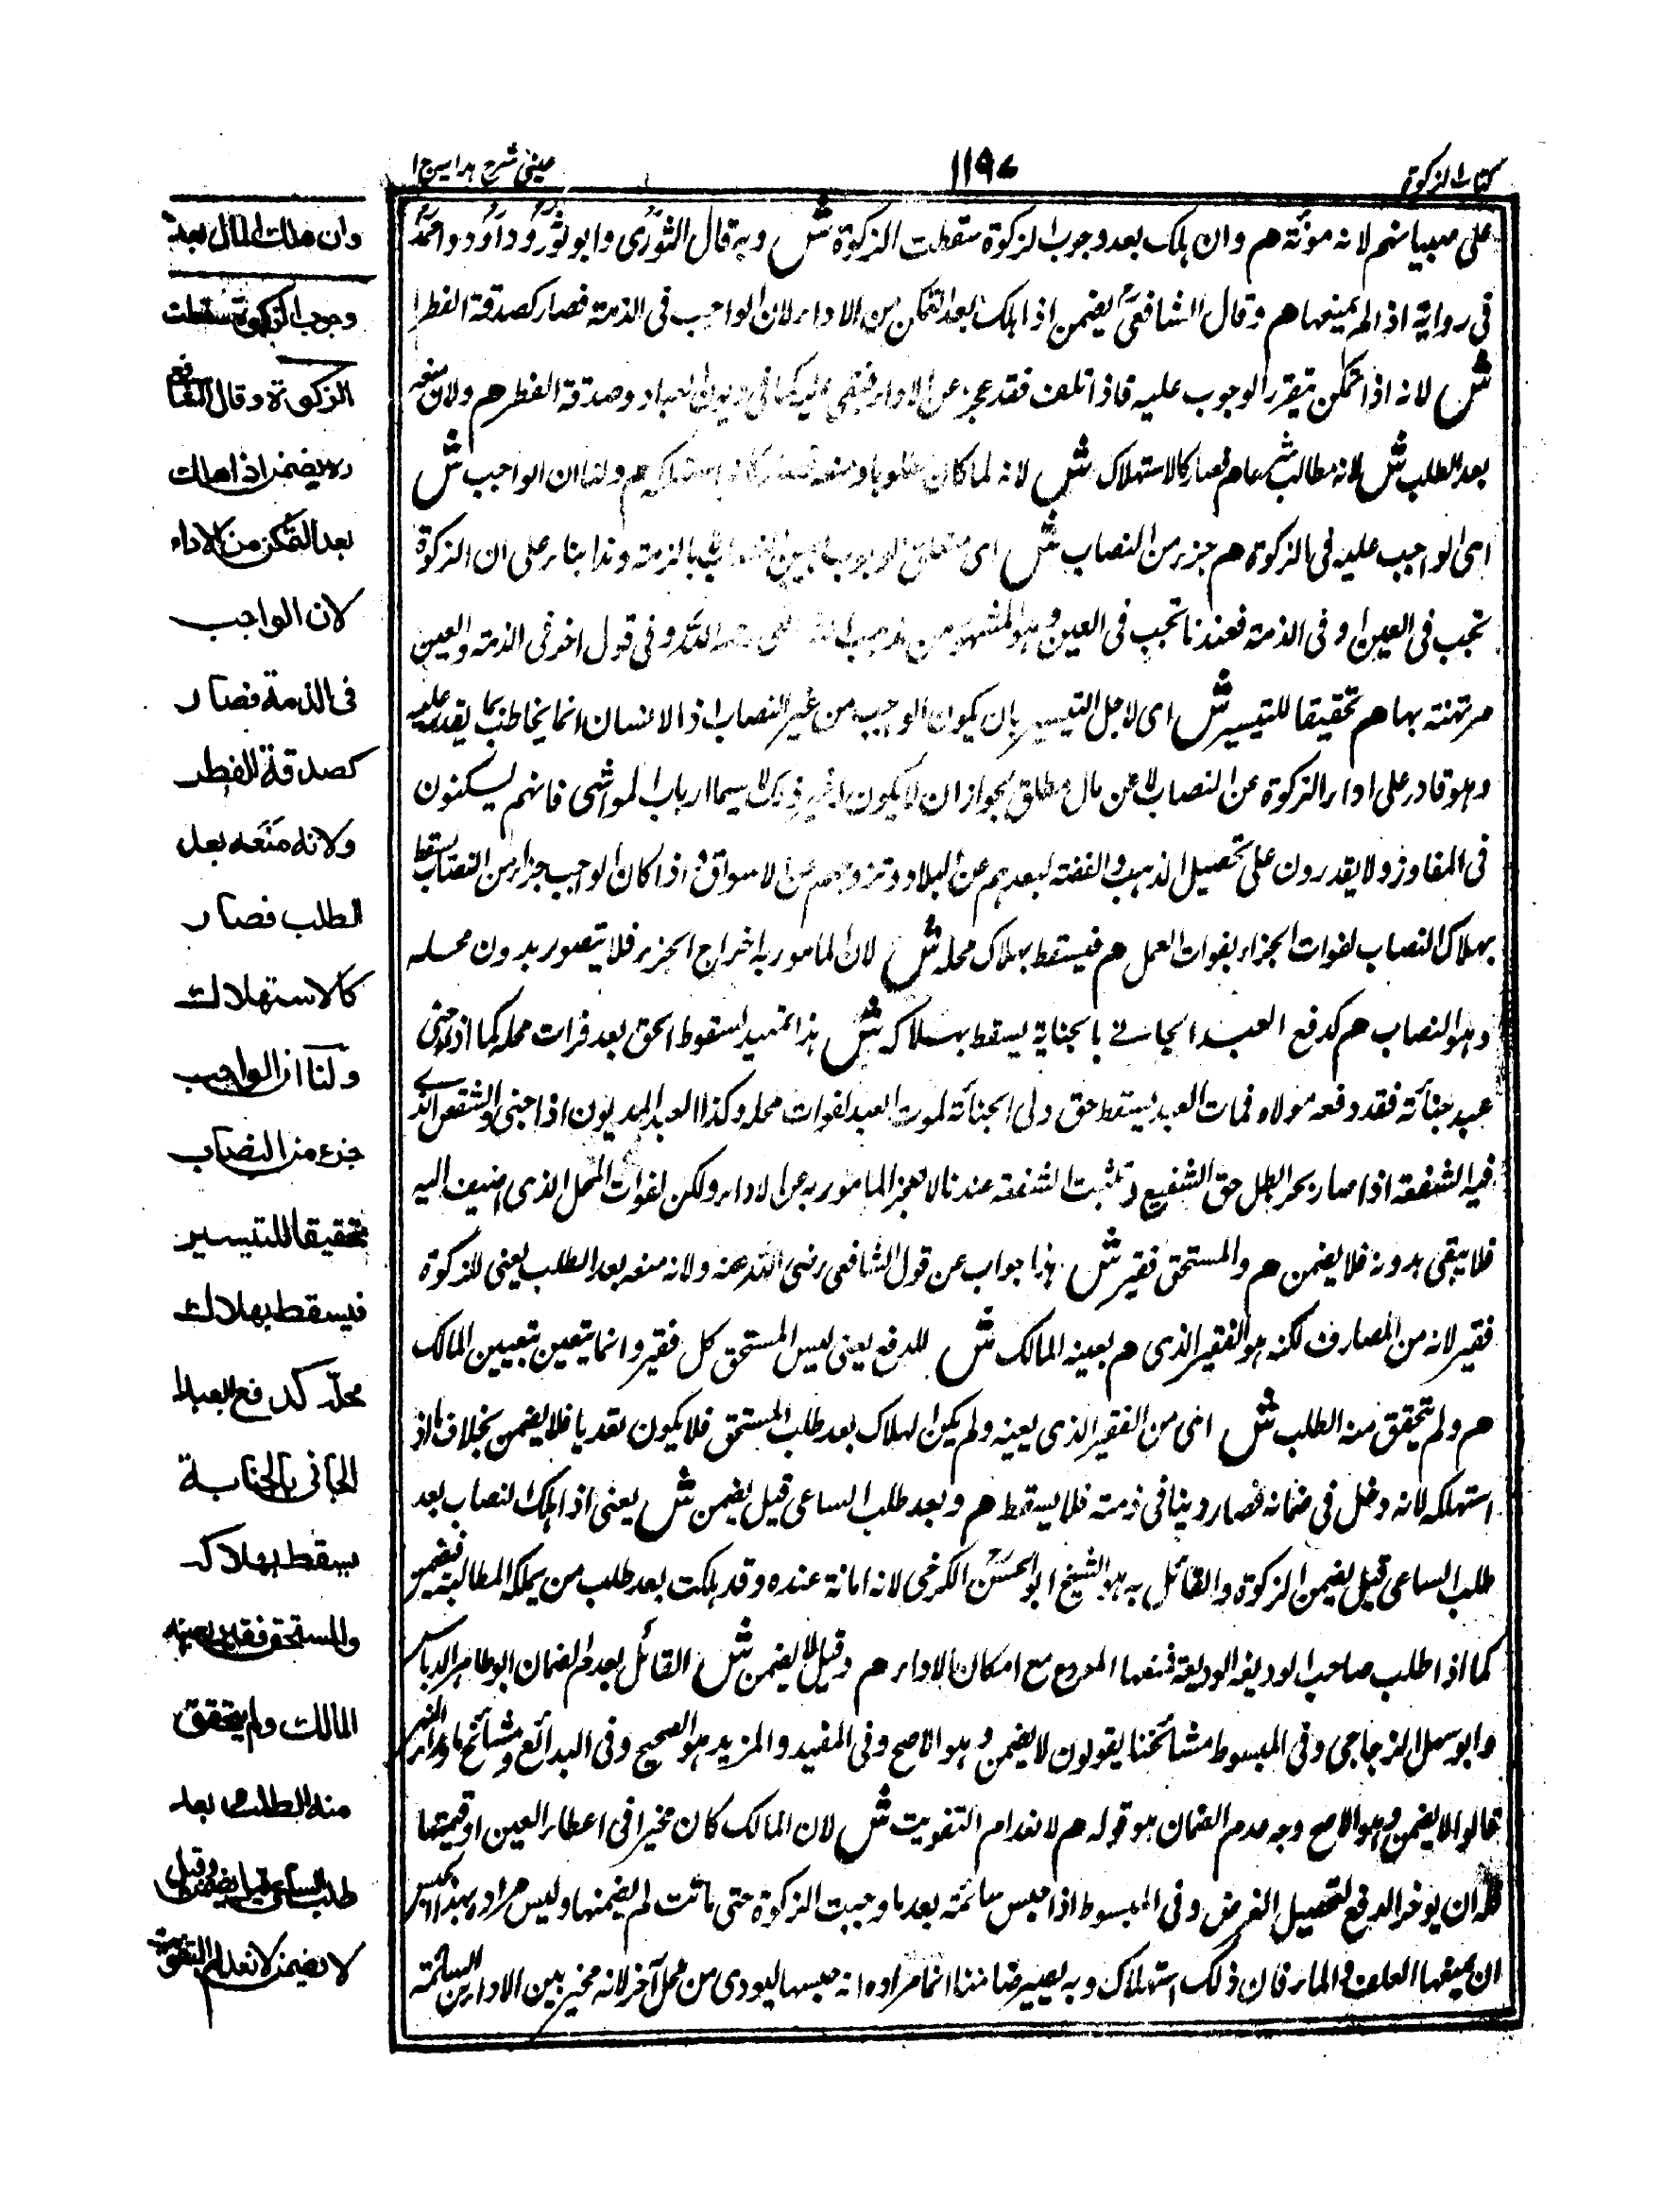 كتاب الزكوة
١١٩٧
عيني شرح هداية ج ١
على صبيانهم لانه مونة هم وان هلك بعد وجوب الزكوة سقطت الزكوة ش وبه قال الثوري وابو ثور وداود واحمد
في رواية اذا لم يمنعها هم وقال الشافعي يضمن اذا هلك بعد التمكن من الاداء لان الواجب في الذمة فصار كصدقة الفطر
ش لانه اذا تمكن تيقرر الوجوب عليه فاذا تلف فقد عجز عن الاداء فيبقى عليه كما في ديون العباد وصدقة الفطر هم ولانه منعه
بعد الطلب ش لانه مطالب شرعا هم فصار كالاستهلاك ش لانه لما كان مطلوبا ومنعه استهلكه هم ولنا ان الواجب ش
اي الواجب عليه في الزكوة هم جزء من النصاب ش اي متعلق الوجوب بالعين بالذمة وهذا بناء على ان الزكوة
تجب في العين او في الذمة فعندنا تجب في العين وهو المشهور من مذهب الشافعي رحمه الله وفي قول اخر في الذمة والعين
مرتهنة بها هم تحقيقا للتيسير ش اي لاجل التيسير بان يكون الواجب من غير النصاب اذ الانسان انما يخاطب بما يقدر عليه
وهو قادر على اداء الزكوة عن النصاب لا عن مال مطلق بجواز ان لا يكون غير ذلك لا سيما ارباب المواشي فانهم يسكنون
في المفاوز ولا يقدرون على تحصيل الذهب والفضة لبعدهم عن البلاد عن الاسواق اذا كان الواجب جزاء من النصاب يسقط
بهلاك النصاب لفوات الجزاء بفوات العمل هم فيسقط بهلاك محله ش لان المامور به اخراج الجزء فلا يتصور بدون محله
وهو النصاب هم كدفع العبد الجاني بالجناية يسقط بهلاكه ش هذا تمهيد لسقوط الحق بعد فوات محله كما اذا جنى
عبد جناية فقد دفعه مولاه فمات العبد يسقط حق ولي الجناية لموت العبد لفوات محله وكذا العبد المديون اذا جنى والشقص الذي
فيه الشفعة اذا صار بحر ابطل حق الشفيع عندنا لا لعجز المامور به عن الاداء ولكن لفوات المحل الذي اضيف اليه
فلا يبقى بدونه فلا يضمن هم والمستحق فقير ش هذا جواب عن قول الشافعي رضي الله عنه ولانه منعه بعد الطلب يعني للزكوة
فقير لانه من المصارف لكنه هو الفقير الذي هم يعينه المالك ش للدفع يعني ليس المستحق كل فقير وانما يتعين بتعيين المالك
هم ولم يتحقق منه الطلب ش اي من الفقير الذي يعينه ولم يكن الهلاك بعد طلب المستحق فلا يكون تعديا فلا يضمن بخلاف ما اذا
استهلكه لانه دخل في ضمانه فصار دينا في ذمته فلا يسقط هم وبعد طلب الساعي قيل يضمن ش يعني اذا هلك النصاب بعد
طلب الساعي قيل يضمن الزكوة والقائل به هو الشيخ ابو الحسن الكرخي لانه امانة عنده وقد هلكت بعد طلب من يملك المطالبة فيضمن
كما اذا طلب صاحب الوديعة الوديعة فمنعها المودع مع امكان الاداء هم وقيل لا يضمن ش القائل بعدم الضمان ابو طاهر الدباس
وابو سهل الزجاجي وفي المبسوط مشائخنا يقولون لا يضمن وهو الاصح وفي المفيد والمزيد هو الصحيح وفي البدائع ومشائخ ما وراء النهر
قالوا لا يضمن وهو الاصح وجه عدم الضمان هو قوله هم لانعدام التفويت ش لان المالك كان مخيرا في اعطاء العين او قيمتها
فله ان يوخر الدفع لتحصيل الغرض وفي المبسوط اذا حبس سائمة بعد ما وجبت الزكوة حتى ماتت لم يضمنها وليس مراده بهذا الحبس
ان يمنعها العلف والماء فان ذلك استهلاك وبه يصير ضامنا انما مراده انه حبسها ليودي من محل آخر لانه مخير بين الاداء من السائمة
وان هلك المال بعد
وجوب الزكوة سقطت
الزكوة وقال الشافعي
رح يضمن اذا هلك
بعد التمكن من الاداء
لان الواجب
في الذمة فصار
كصدقة الفطر
ولانه منعه بعد
الطلب فصار
كالاستهلاك
ولنا ان الواجب
جزء من النصاب
تحقيقا للتيسير
فيسقط بهلاك
محله كدفع العبد
الجاني بالجناية
يسقط بهلاكه
والمستحق فقير يعينه
المالك ولم يتحقق
منه الطلب وبعد
طلب الساعي قيل يضمن وقيل
لا يضمن لانعدام التفويت